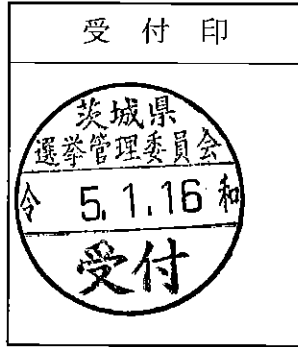 受付印
茨城県
選挙管理委員会
令 5.1.16 和
受付